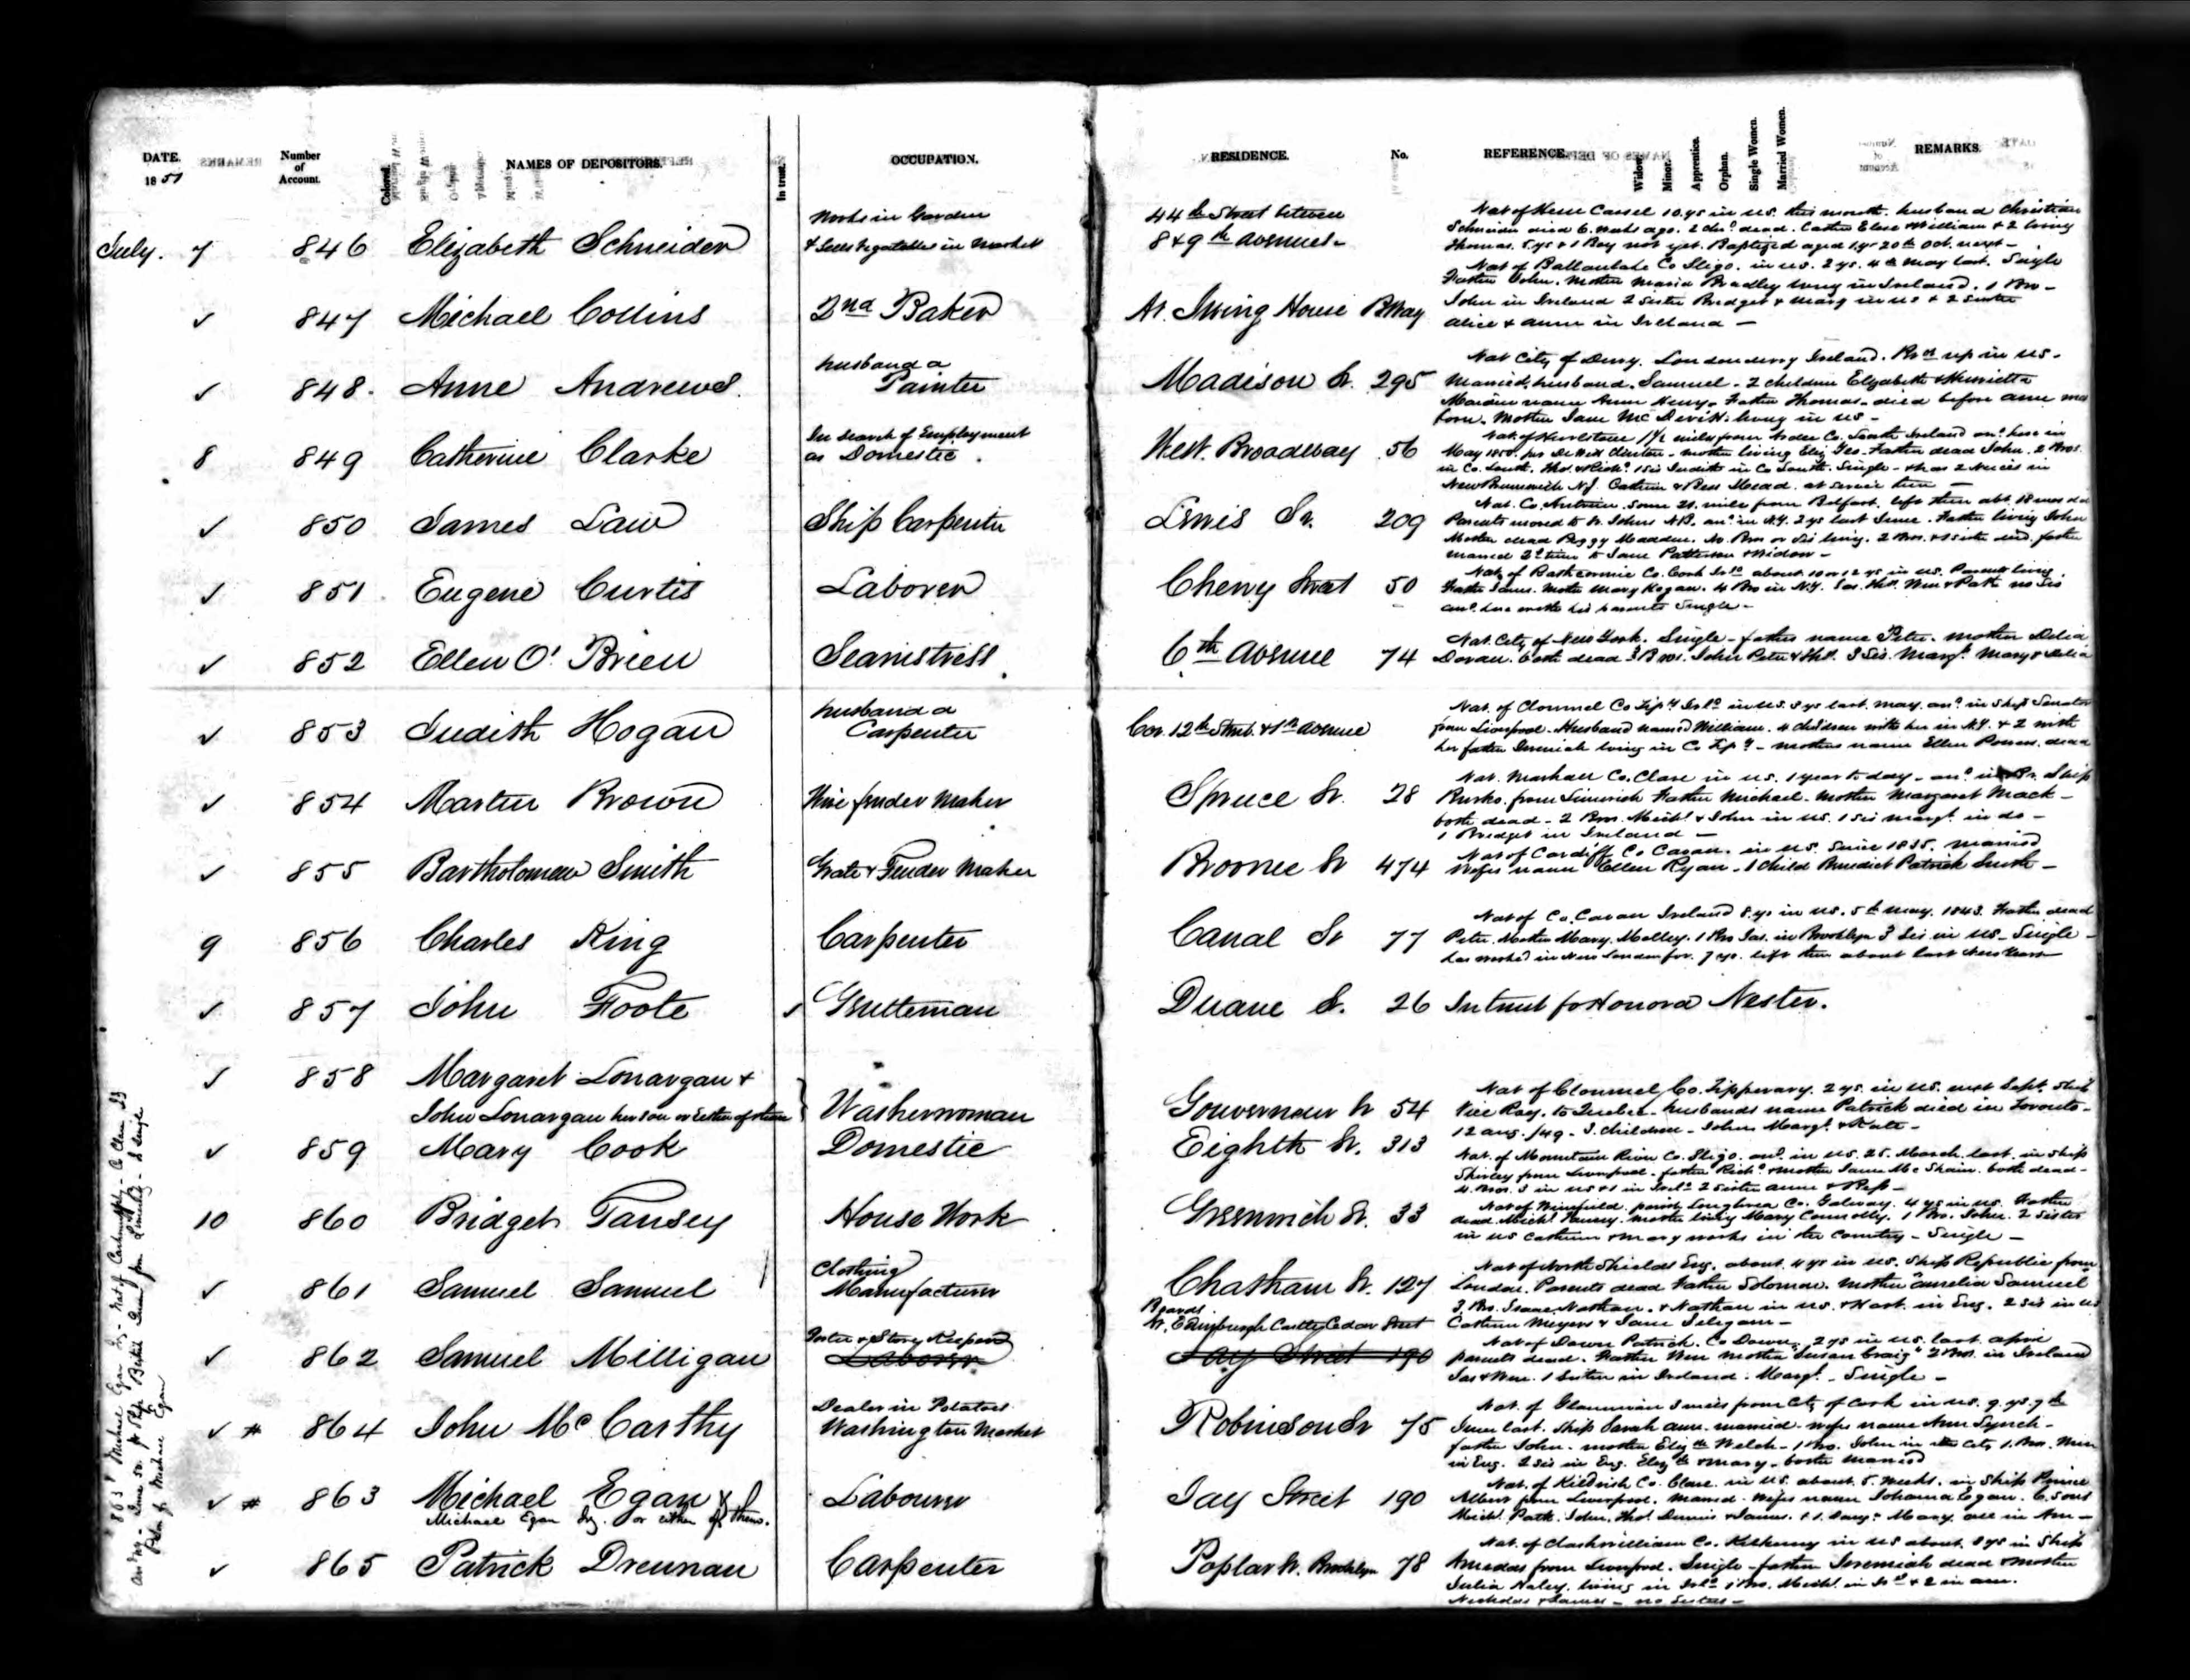 DATE. 1851
Number of Account.
Colored.
NAMES OF DEPOSITORS.
In trust.
OCCUPATION.
RESIDENCE.
No.
REFERENCE.
Widow.
Minor.
Apprentice.
Orphan.
Single Women.
Married Women.
REMARKS.
July. 7 846 Elizabeth Schneider Works in Garden & Sells Vegetables in Market 44th Street between 8 & 9th Avenues
Nat of Hesse Cassel 10 ys in US. this month. husband Christian
Schneider died 6 weeks ago. 2 chn dead. Catherine Elise & William & 2 living
Thomas. 5 ys & 1 Boy not yet Baptized aged 1 yr 20th Oct. next –
✓ 847 Michael Collins 2nd Baker At. Irving House BWay
Co Sligo. in US. 2 ys. 4th May last. Single
Father John. Mother Maria Bradley living in Ireland. 1 Bro –
John in Ireland 2 Sister Bridget & Mary in US & 2 Sister
Alice & Anne in Ireland –
✓ 848. Anne Andrews. husband a Painter Madison St. 295
Nat City of Derry. Londonderry Ireland. Brot up in US –
Married, husband. Samuel – 2 children Elizabeth & Henrietta
Maiden name Anne Henry – Father Thomas – died before Anne was
born. Mother Jane McDevitt. living in US –
8 849 Catherine Clarke In Search of Employment as Domestic. West. Broadway 56
1½ miles from Ardee Co. Louth Ireland arr. here in
May 1850. per DeWitt Clinton – Mother living Eliz Geo – Father dead John. 2 Bros.
in Co. Louth. Thos. & Richd. 1 Sis Judith in Co Louth. Single – & has 2 Nieces in
New Brunswick NJ. Cathrin & Bess Mead. at service there –
✓ 850 James Law Ship Carpenter Lewis St. 209
Nat. Co. Antrim. Some 21. miles from Belfast. left there abt 18 mos old
Parents moved to St. Johns NB. arr. in N.Y. 2 ys last June. Father living John
Mother dead Peggy Madden. No Bros or Sis living. 2 Bros. & 1 sister died. father
married 2d time to Jane Patterson & Widow –
✓ 851 Eugene Curtis Laborer Cherry Street 50
Co. Cork Ird. about 10 or 12 ys in US. Parents living.
Father James. Mother Mary Hogan. 4 Bro in N.Y. Jas. Thos. Wm & Patk no Sis
arr. here with his parents Single –
✓ 852 Ellen O'Brien Seamstress. 6th Avenue 74
Nat. City of New York. Single – fathers name Peter. Mother Delia
Doran. both dead 3 Bros. John Peter & Thos. 3 Sis. Margt. Mary & Delia
✓ 853 Judith Hogan husband a Carpenter Cor. 12th Street. & 1st Avenue
Nat. of Clonmel Co Tipy Ird. in US. 3 ys last. May. arr. in Ship Senator
from Liverpool – Husband named William. 4 children with her in N.Y. & 2 with
her father Jeremiah living in Co Tipy – mothers name Ellen Power. dead
✓ 854 Martin Brown Wire fender Maker Spruce St. 28
Co. Clare in US. 1 year to day – arr. in Br. Ship
from Limerick Father Michael – Mother Margaret Mack –
both dead – 2 Bros. Michl & John in US. 1 Sis Margt. in do –
1 Bridget in Ireland –
✓ 855 Bartholomew Smith Grate & Fender Maker Broome St 474
Nat of Cardiff Co Cavan. in US. Since 1835. married
Wifes name Ellen Ryan. 1 Child Benedict Patrick Smith –
9 856 Charles King Carpenter Canal St 77
Nat of Co. Cavan Ireland 8 ys in US. 5th May. 1843. Father dead
Peter. Mother Mary. Molley. 1 Bro Jas. in Brooklyn 3 Sis in US – Single –
has worked in New London for. 7 ys. left there about last New Years
✓ 857 John Foote ✓ Gentleman Duane St. 26 In trust for Honora Nester.
✓ 858 Margaret Lonargan &
John Lonargan her son or Either of them } Washerwoman Gouverneur St 54
Nat of Clonmel Co. Tipperary. 2 ys. in US. next Sept. Ship
Vice Roy. to Quebec – husbands name Patrick died in Toronto –
12 Aug. /49 – 3. children – John. Margt. & Kate –
✓ 859 Mary Cook Domestic Eighth St. 313
Nat. of Mountain River Co. Sligo. arr. in US. 25. March. last. in Ship
Shirley from Liverpool. father Richd. & mother Jane McShain. both dead –
4 Bros. 3 in US & 1 in Ireld 2 Sister Anne & Bess –
10 860 Bridget Tansey House Work Greenwich St. 33
parish Loughrea Co. Galway. 4 ys in US. Father
dead. Michl Tansey. mother living Mary Connolly. 1 Bro. John. 2 Sister
in US Cathrin & Mary works in the Country – Single –
✓ 861 Samuel Samuel Clothing Manufacturer Chatham St. 127
Nat of North Shields Eng. about. 4 ys in US. Ship Republic from
London. Parents dead Father Solomon. Mother Amelia Samuel
3. Bro. Isaac Nathan. & Nathan in US. & Hart. in Eng. 2 Sis in US
Cathrin Meyers & Jane
✓ 862 Samuel Milligan Porter & Store Keeper Laborer Boards. at. Edinburgh Castle, Cedar Street Jay Street 190
Nat of Down Patrick. Co Down. 2 ys in US. last. April
parents dead. Father Wm Mother "Susan Craig" 2 Bros. in Ireland
Jas & Wm. 1 Sister in Ireland. Margt. – Single –
✓ # 864 John McCarthy Dealer in Potatoes. Washington Market Robinson St 75
Nat. of Glanmire 3 miles from City of Cork in US. 9. ys. 9th
June last. Ship Sarah Ann. married – wifes name Ann Lynch –
father John. mother Elizth Welch – 1 Bro. John in the City 1. Bro. Wm
in Eng. 2 Sis in Eng. Elizth & Mary – both married
✓ # 863 Michael Egan &
Michael Egan Jr. or either of them. Labourer Jay Street 190
Nat. of Kildrish Co. Clare. in US. about. 5. weeks. in Ship Prince
Albert from Liverpool. Married – Wifes name Johanna Egan. 6. Sons
Michl. Patk. John. Thos. Dennis & James. & 1. Daur. Mary. all in Am –
✓ 865 Patrick Drennan Carpenter Poplar St. Brooklyn 78
Co. Kilkenny in US about. 2 ys in Ship
from Liverpool. Single – father Jeremiah dead & mother
Julia Haley. living in Ird. 1 Bro. Michl. in Ird. & 2 in Am.
Nicholas & James – no Sisters –
"863" Michael Egan Jr. – Nat of – Co Clare
Michael Egan